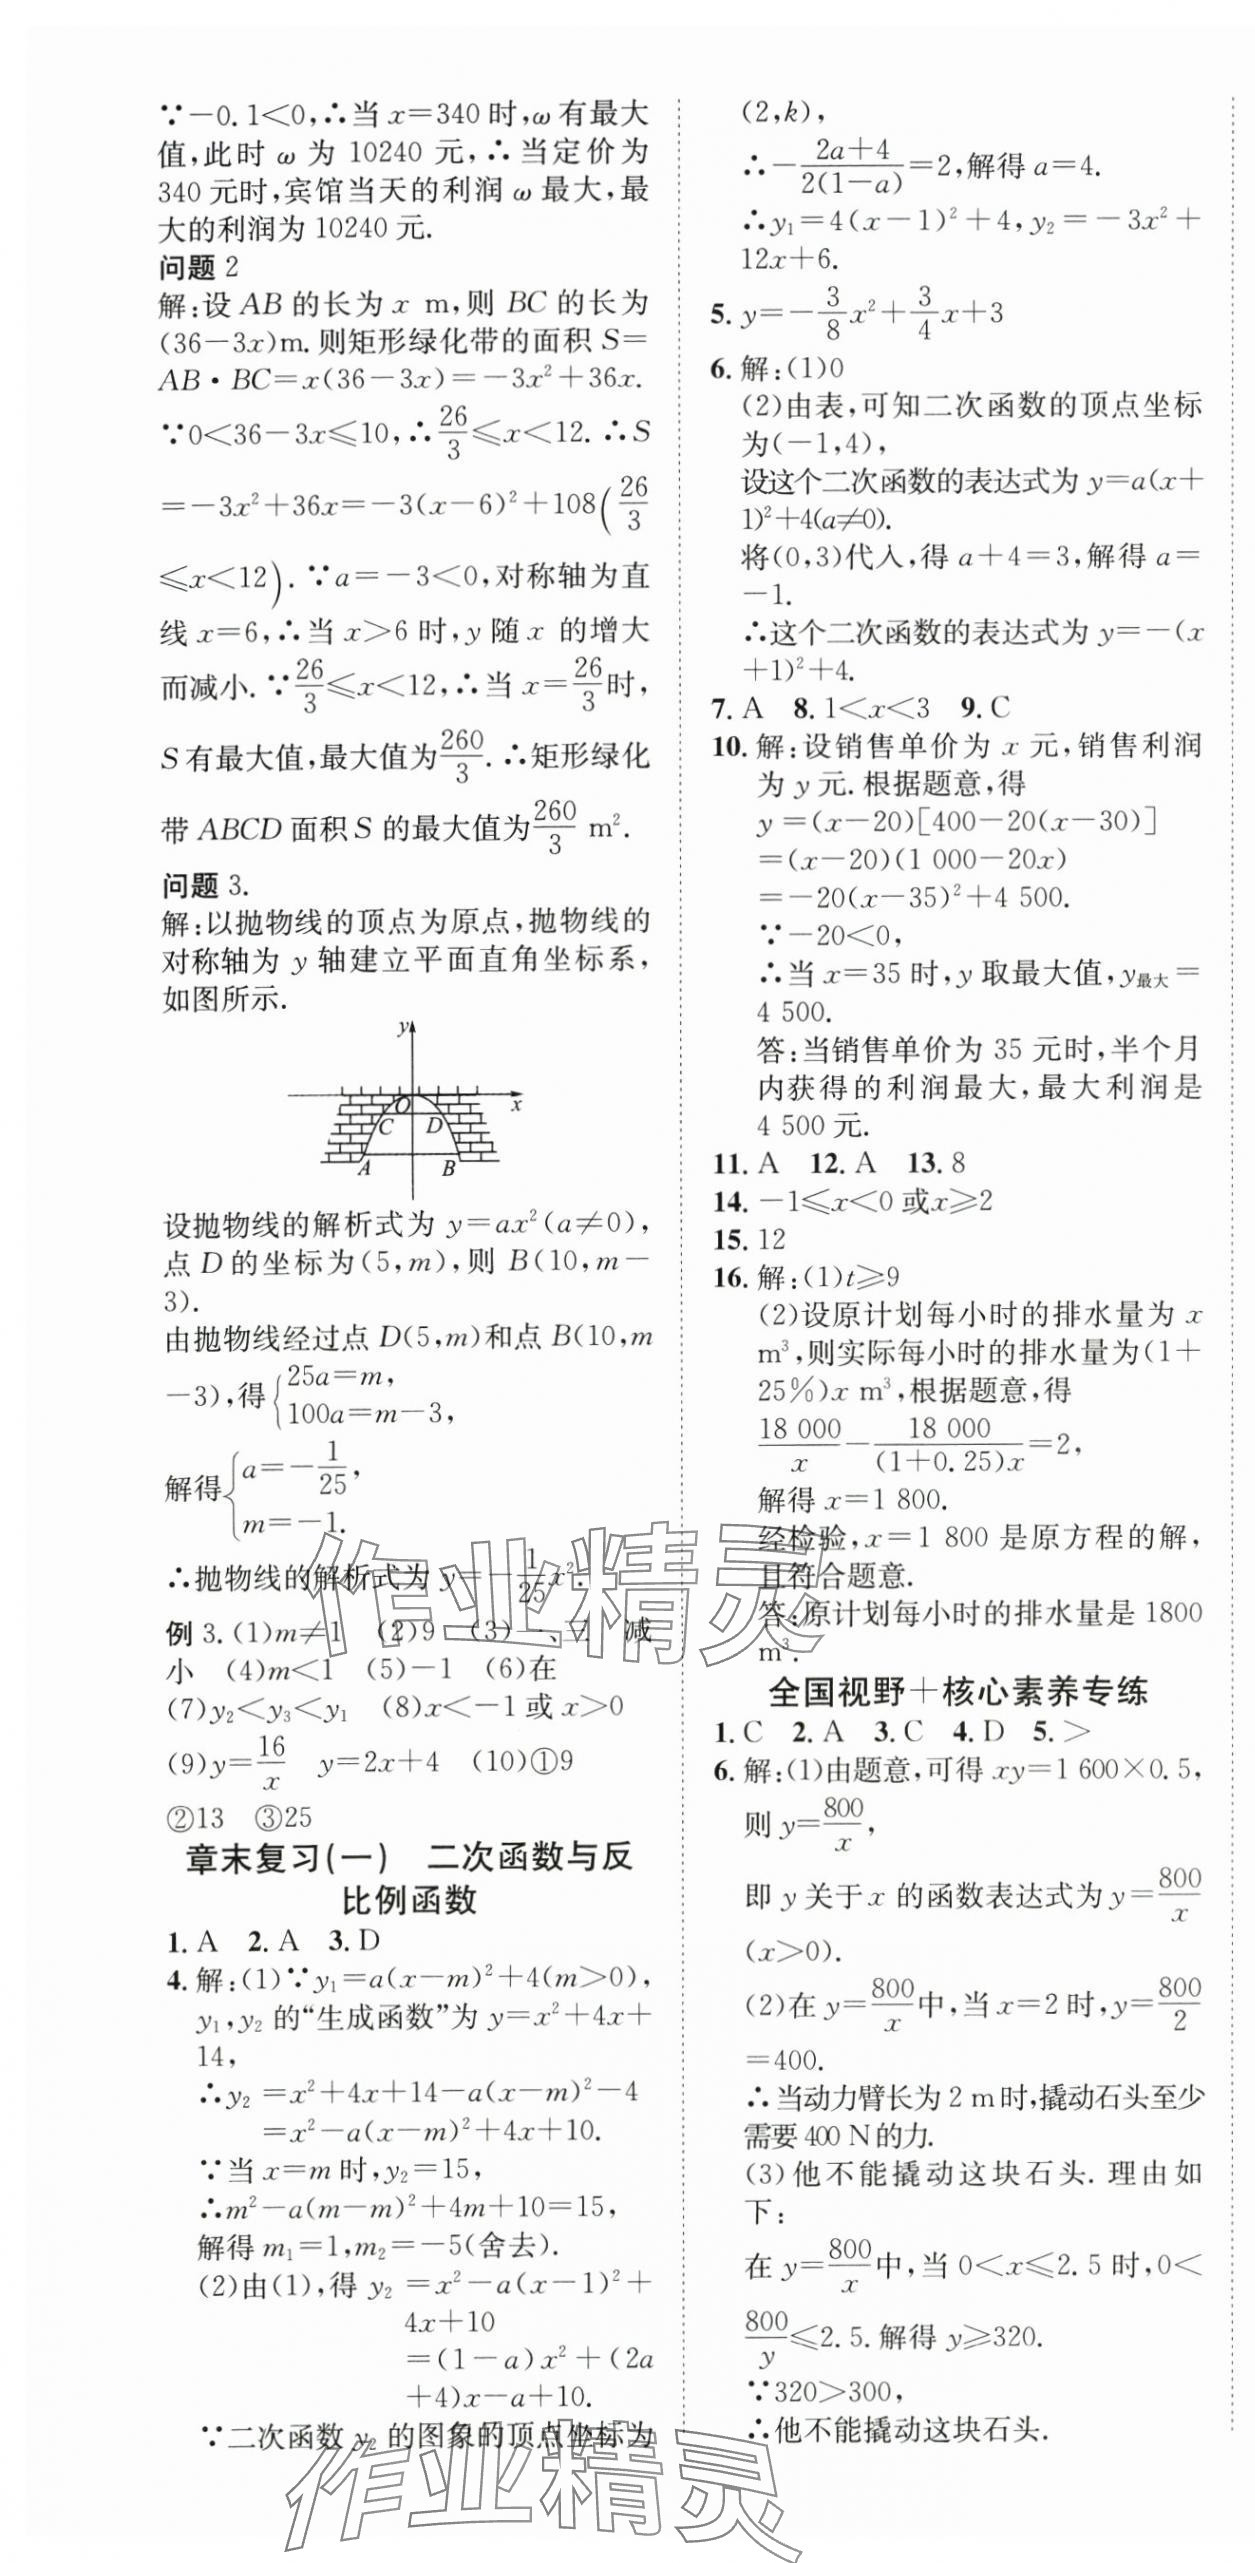 ∵−0.1<0,∴当 x=340 时,ω有最大
值,此时 ω 为 10240 元,∴当定价为
340 元时,宾馆当天的利润ω最大,最
大的利润为 10240 元.
问题 2
解:设 AB 的长为 x m,则 BC 的长为
(36−3x)m.则矩形绿化带的面积 S=
AB·BC=x(36−3x)=−3x²+36x.
∵0<36−3x≤10,∴26/3≤x<12.∴S
=−3x²+36x=−3(x−6)²+108(26/3
≤x<12).∵a=−3<0,对称轴为直
线 x=6,∴当 x>6 时,y 随 x 的增大
而减小.∵26/3≤x<12,∴当 x=26/3时,
S有最大值,最大值为260/3.∴矩形绿化
带 ABCD 面积 S 的最大值为260/3 m².
问题 3.
解:以抛物线的顶点为原点,抛物线的
对称轴为 y 轴建立平面直角坐标系,
如图所示.
y
O x
C D
A B
设抛物线的解析式为 y=ax²(a≠0),
点 D 的坐标为(5,m),则 B(10,m−
3).
由抛物线经过点 D(5,m)和点 B(10,m
−3),得{25a=m,
100a=m−3,
解得{a=−1/25,
m=−1.
∴抛物线的解析式为 y=−1/25x².
例 3.(1)m≠1 (2)9 (3)一、三 减
小 (4)m<1 (5)−1 (6)在
(7)y₂<y₃<y₁ (8)x<−1 或 x>0
(9)y=16/x y=2x+4 (10)①9
②13 ③25
章末复习(一) 二次函数与反
比例函数
1. A 2. A 3. D
4. 解:(1)∵y₁=a(x−m)²+4(m>0),
y₁,y₂ 的“生成函数”为 y=x²+4x+
14,
∴y₂=x²+4x+14−a(x−m)²−4
=x²−a(x−m)²+4x+10.
∵当 x=m 时,y₂=15,
∴m²−a(m−m)²+4m+10=15,
解得 m₁=1,m₂=−5(舍去).
(2)由(1),得 y₂=x²−a(x−1)²+
4x+10
=(1−a)x²+(2a
+4)x−a+10.
∵二次函数 y₂ 的图象的顶点坐标为
(2,k),
∴−(2a+4)/(2(1−a))=2,解得 a=4.
∴y₁=4(x−1)²+4,y₂=−3x²+
12x+6.
5. y=−3/8x²+3/4x+3
6. 解:(1)0
(2)由表,可知二次函数的顶点坐标
为(−1,4),
设这个二次函数的表达式为 y=a(x+
1)²+4(a≠0).
将(0,3)代入,得 a+4=3,解得 a=
−1.
∴这个二次函数的表达式为 y=−(x
+1)²+4.
7. A 8. 1<x<3 9. C
10. 解:设销售单价为 x 元,销售利润
为 y 元.根据题意,得
y=(x−20)[400−20(x−30)]
=(x−20)(1 000−20x)
=−20(x−35)²+4 500.
∵−20<0,
∴当 x=35 时,y 取最大值,y最大=
4 500.
答:当销售单价为 35 元时,半个月
内获得的利润最大,最大利润是
4 500 元.
11. A 12. A 13. 8
14. −1≤x<0 或 x≥2
15. 12
16. 解:(1)t≥9
(2)设原计划每小时的排水量为 x
m³,则实际每小时的排水量为(1+
25%)x m³,根据题意,得
18 000/x−18 000/((1+0.25)x)=2,
解得 x=1 800.
经检验,x=1 800 是原方程的解,
且符合题意.
答:原计划每小时的排水量是 1800
m³.
全国视野+核心素养专练
1. C 2. A 3. C 4. D 5. >
6. 解:(1)由题意,可得 xy=1 600×0.5,
则 y=800/x,
即 y 关于 x 的函数表达式为 y=800/x
(x>0).
(2)在 y=800/x中,当 x=2 时,y=800/2
=400.
∴当动力臂长为 2 m时,撬动石头至少
需要 400 N的力.
(3)他不能撬动这块石头.理由如
下:
在 y=800/x中,当 0<x≤2.5 时,0<
800/y≤2.5.解得 y≥320.
∵320>300,
∴他不能撬动这块石头.
作业精灵
作业精灵